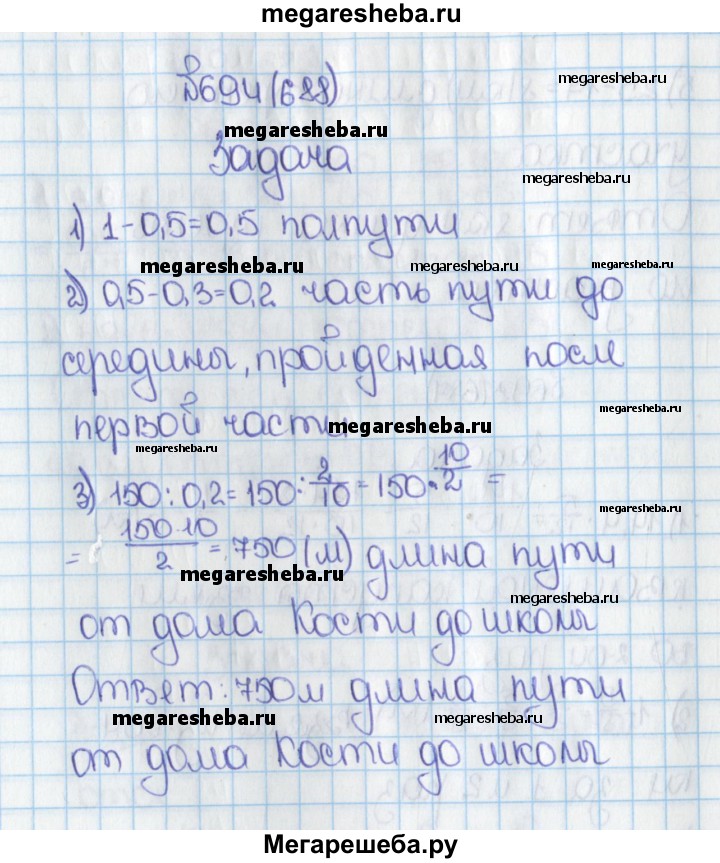 megaresheba.ru
№694(688)
megaresheba.ru
megaresheba.ru
Задача
megaresheba.ru
1) 1-0,5=0,5 полпути
megaresheba.ru
megaresheba.ru
megaresheba.ru
2) 0,5-0,3=0,2 часть пути до
середины, пройденная после
megaresheba.ru
первой части
megaresheba.ru
megaresheba.ru
3) 150:0,2=150:2/10=150·10/2=
=150·10/2=750(м) длина пути
megaresheba.ru
megaresheba.ru
от дома Кости до школы
Ответ: 750м длина пути
megaresheba.ru
megaresheba.ru
от дома Кости до школы
Мегарешеба.ру